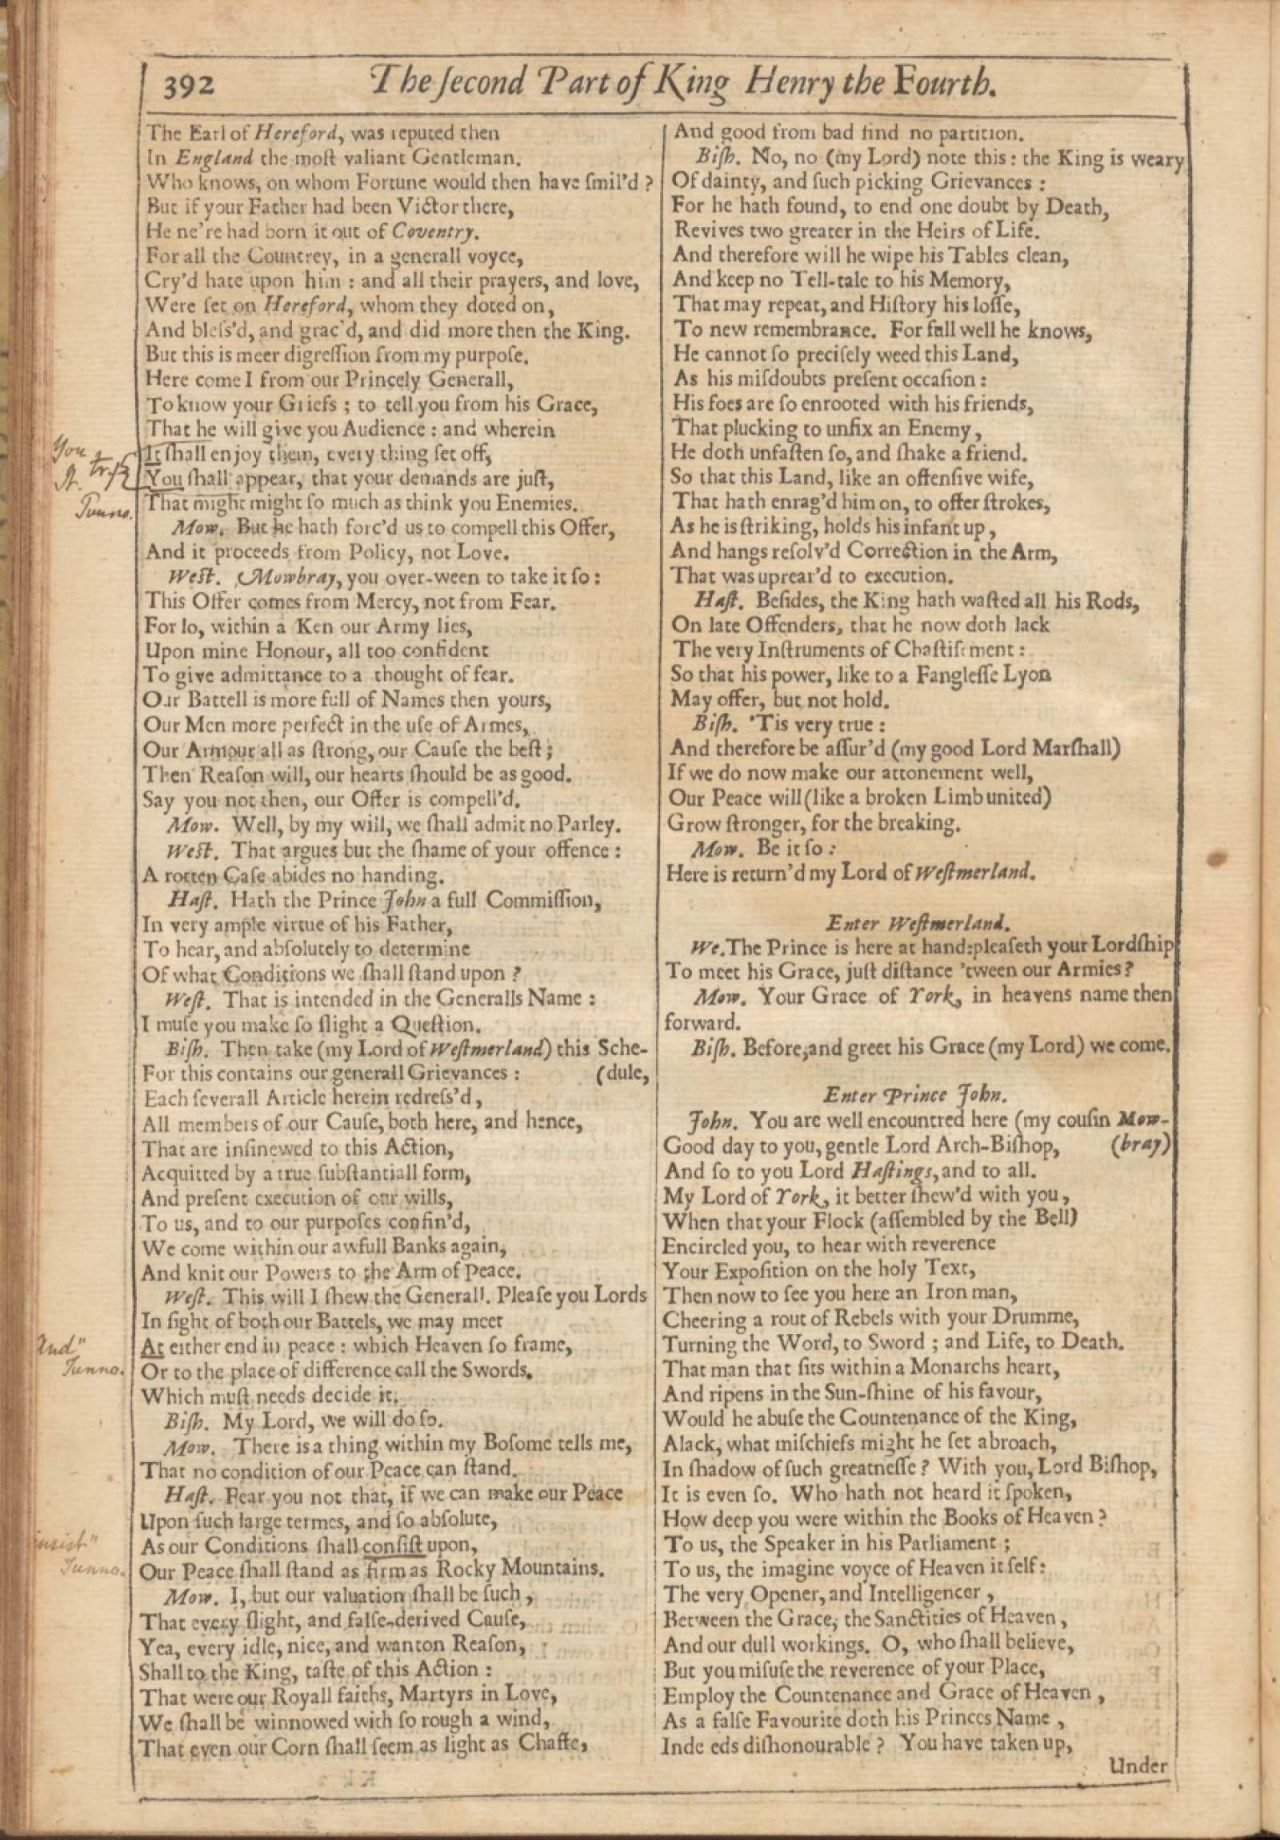 392
The ſecond Part of King Henry the Fourth.
The Earl of Hereford, was reputed then
In England the moſt valiant Gentleman.
Who knows, on whom Fortune would then have ſmil'd?
But if your Father had been Victor there,
He ne're had born it out of Coventry.
For all the Countrey, in a generall voyce,
Cry'd hate upon him : and all their prayers, and love,
Were ſet on Hereford, whom they doted on,
And bleſs'd, and grac'd, and did more then the King.
But this is meer digreſſion from my purpoſe.
Here come I from our Princely Generall,
To know your Griefs ; to tell you from his Grace,
That he will give you Audience : and wherein
It ſhall enjoy them, every thing ſet off,
You ſhall appear, that your demands are juſt,
That might might ſo much as think you Enemies.
Mow. But he hath forc'd us to compell this Offer,
And it proceeds from Policy, not Love.
Weſt. Mowbray, you over-ween to take it ſo :
This Offer comes from Mercy, not from Fear.
For lo, within a Ken our Army lies,
Upon mine Honour, all too confident
To give admittance to a thought of fear.
Our Battell is more full of Names then yours,
Our Men more perfect in the uſe of Armes,
Our Armour all as ſtrong, our Cauſe the beſt ;
Then Reaſon will, our hearts ſhould be as good.
Say you not then, our Offer is compell'd.
Mow. Well, by my will, we ſhall admit no Parley.
Weſt. That argues but the ſhame of your offence :
A rotten Caſe abides no handing.
Haſt. Hath the Prince John a full Commiſſion,
In very ample virtue of his Father,
To hear, and abſolutely to determine
Of what Conditions we ſhall ſtand upon ?
Weſt. That is intended in the Generalls Name :
I muſe you make ſo ſlight a Queſtion.
Biſh. Then take (my Lord of Weſtmerland) this Sche-
For this contains our generall Grievances : (dule,
Each ſeverall Article herein redreſs'd,
All members of our Cauſe, both here, and hence,
That are inſinewed to this Action,
Acquitted by a true ſubſtantiall form,
And preſent execution of our wills,
To us, and to our purpoſes confin'd,
We come within our awfull Banks again,
And knit our Powers to the Arm of Peace.
Weſt. This will I ſhew the Generall. Pleaſe you Lords
In ſight of both our Battels, we may meet
At either end in peace : which Heaven ſo frame,
Or to the place of difference call the Swords,
Which muſt needs decide it.
Biſh. My Lord, we will do ſo.
Mow. There is a thing within my Boſome tells me,
That no condition of our Peace can ſtand.
Haſt. Fear you not that, if we can make our Peace
Upon ſuch large termes, and ſo abſolute,
As our Conditions ſhall conſiſt upon,
Our Peace ſhall ſtand as firm as Rocky Mountains.
Mow. I, but our valuation ſhall be ſuch,
That every ſlight, and falſe-derived Cauſe,
Yea, every idle, nice, and wanton Reaſon,
Shall to the King, taſte of this Action :
That were our Royall faiths, Martyrs in Love,
We ſhall be winnowed with ſo rough a wind,
That even our Corn ſhall ſeem as light as Chaffe,
You
tr.
Tunno.
And"
Tunno.
insist"
Tunno.
And good from bad find no partition.
Biſh. No, no (my Lord) note this : the King is weary
Of dainty, and ſuch picking Grievances :
For he hath found, to end one doubt by Death,
Revives two greater in the Heirs of Life.
And therefore will he wipe his Tables clean,
And keep no Tell-tale to his Memory,
That may repeat, and Hiſtory his loſſe,
To new remembrance. For full well he knows,
He cannot ſo preciſely weed this Land,
As his miſdoubts preſent occaſion :
His foes are ſo enrooted with his friends,
That plucking to unfix an Enemy,
He doth unfaſten ſo, and ſhake a friend.
So that this Land, like an offenſive wife,
That hath enrag'd him on, to offer ſtrokes,
As he is ſtriking, holds his infant up,
And hangs reſolv'd Correction in the Arm,
That was uprear'd to execution.
Haſt. Beſides, the King hath waſted all his Rods,
On late Offenders, that he now doth lack
The very Inſtruments of Chaſtiſement :
So that his power, like to a Fangleſſe Lyon
May offer, but not hold.
Biſh. 'Tis very true :
And therefore be aſſur'd (my good Lord Marſhall)
If we do now make our attonement well,
Our Peace will (like a broken Limb united)
Grow ſtronger, for the breaking.
Mow. Be it ſo :
Here is return'd my Lord of Weſtmerland.
Enter Weſtmerland.
We. The Prince is here at hand : pleaſeth your Lordſhip
To meet his Grace, juſt diſtance 'tween our Armies ?
Mow. Your Grace of York, in heavens name then
forward.
Biſh. Before, and greet his Grace (my Lord) we come.
Enter Prince John.
John. You are well encountred here (my couſin Mow-
Good day to you, gentle Lord Arch-Biſhop, (bray)
And ſo to you Lord Haſtings, and to all.
My Lord of York, it better ſhew'd with you,
When that your Flock (aſſembled by the Bell)
Encircled you, to hear with reverence
Your Expoſition on the holy Text,
Then now to ſee you here an Iron man,
Cheering a rout of Rebels with your Drumme,
Turning the Word, to Sword ; and Life, to Death.
That man that ſits within a Monarchs heart,
And ripens in the Sun-ſhine of his favour,
Would he abuſe the Countenance of the King,
Alack, what miſchiefs might he ſet abroach,
In ſhadow of ſuch greatneſſe ? With you, Lord Biſhop,
It is even ſo. Who hath not heard it ſpoken,
How deep you were within the Books of Heaven ?
To us, the Speaker in his Parliament ;
To us, the imagine voyce of Heaven it ſelf :
The very Opener, and Intelligencer,
Between the Grace, the Sanctities of Heaven,
And our dull workings. O, who ſhall believe,
But you miſuſe the reverence of your Place,
Employ the Countenance and Grace of Heaven,
As a falſe Favourite doth his Princes Name,
Inde eds diſhonourable ? You have taken up,
Under